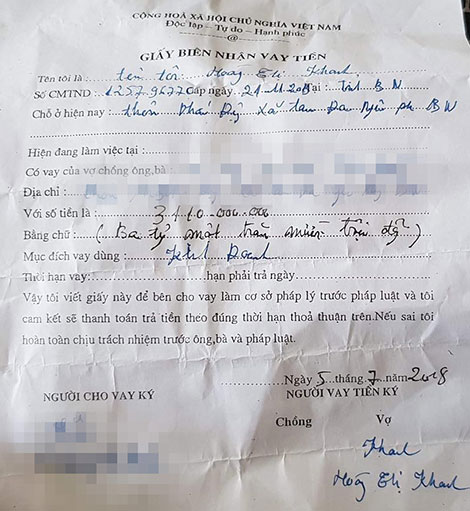 CỘNG HOÀ XÃ HỘI CHỦ NGHĨA VIỆT NAM
Độc lập - Tự do - Hạnh phúc
@
GIẤY BIÊN NHẬN VAY TIỀN
Tên tôi là : tên tôi Hoàng Thị Khanh
Số CMTND : Cấp ngày 21.11.2013 Tại : Tỉnh BN
Chỗ ở hiện nay : thôn xã Yên BN
Hiện đang làm việc tại :
Có vay của vợ chồng ông,bà :
Địa chỉ :
Với số tiền là : 3.110.000.000
Bằng chữ : ( Ba tỷ một trăm triệu đ )
Mục đích vay dùng : Kinh Doanh
Thời hạn vay: hạn phải trả ngày
Vậy tôi viết giấy này để bên cho vay làm cơ sở pháp lý trước pháp luật và tôi
cam kết sẽ thanh toán trả tiền theo đúng thời hạn thoả thuận trên.Nếu sai tôi
hoàn toàn chịu trách nhiệm trước ông,bà và pháp luật.
Ngày 5 tháng 7 năm 2018
NGƯỜI CHO VAY KÝ NGƯỜI VAY TIỀN KÝ
Chồng Vợ
Khanh
Hoàng Thị Khanh